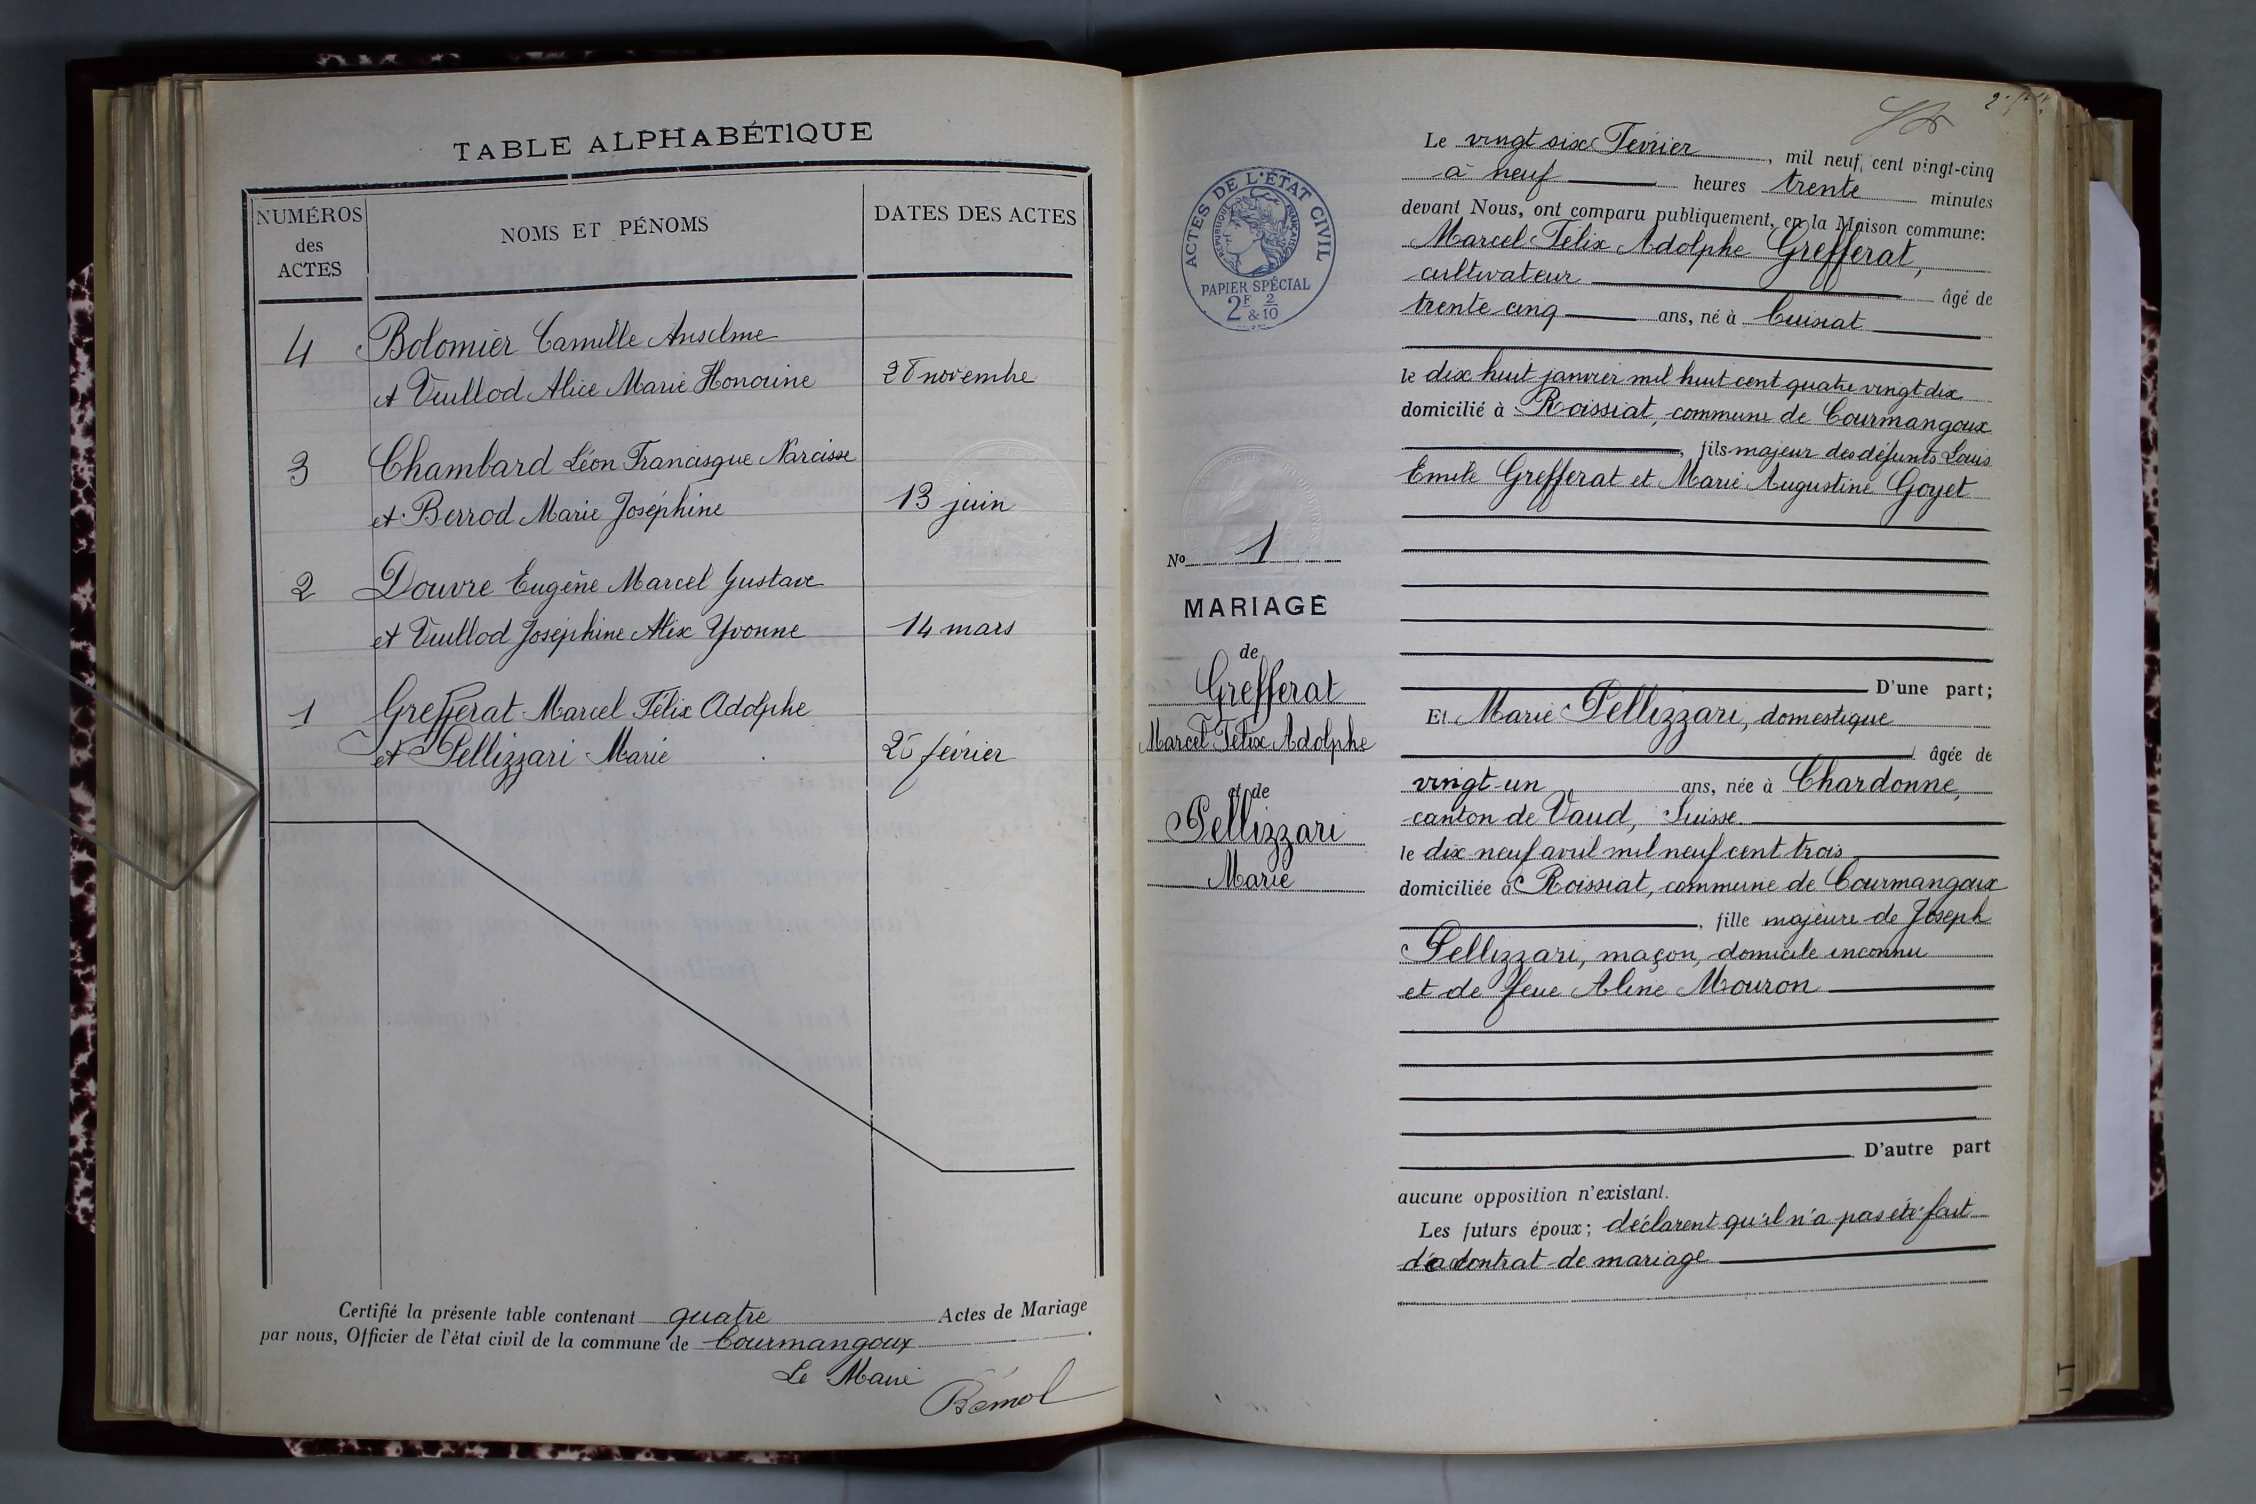 TABLE ALPHABÉTIQUE
NUMÉROS
des
ACTES
NOMS ET PÉNOMS
DATES DES ACTES
4 Bolomier Camille Anselme
et Vuillod Alice Marie Honorine 28 novembre
3 Chambard Léon Francisque Narcisse
et Berrod Marie Joséphine 13 juin
2 Douvre Eugène Marcel Gustave
et Vuillod Joséphine Alix Yvonne 14 mars
1 Grefferat Marcel Félix Adolphe
et Pellizzari Marie février
Certifié la présente table contenant quatre Actes de Mariage
par nous, Officier de l'état civil de la commune de Courmangoux.
Le Maire
Bémol
ACTES DE L'ÉTAT CIVIL
RÉPUBLIQUE FRANÇAISE
PAPIER SPÉCIAL
2F & 2/10
No 1
MARIAGE
de
Grefferat
Marcel Félix Adolphe
et de
Pellizzari
Marie
Le vingt six Février, mil neuf cent vingt-cinq
à neuf heures trente minutes
devant Nous, ont comparu publiquement, en la Maison commune:
Marcel Félix Adolphe Grefferat,
cultivateur âgé de
trente cinq ans, né à Cuisiat
le dix huit janvier mil huit cent quatre vingt dix
domicilié à Roissiat, commune de Courmangoux
, fils majeur des défunts Louis
Emile Grefferat et Marie Augustine Goyet
D'une part;
Et Marie Pellizzari, domestique
âgée de
vingt-un ans, née à Chardonne,
canton de Vaud, Suisse
le dix neuf avril mil neuf cent trois
domiciliée à Roissiat, commune de Courmangoux
, fille majeure de Joseph
Pellizzari, maçon, domicile inconnu
et de feue Aline Mouron
D'autre part
aucune opposition n'existant.
Les futurs époux; déclarent qu'il n'a pas été fait
contrat de mariage